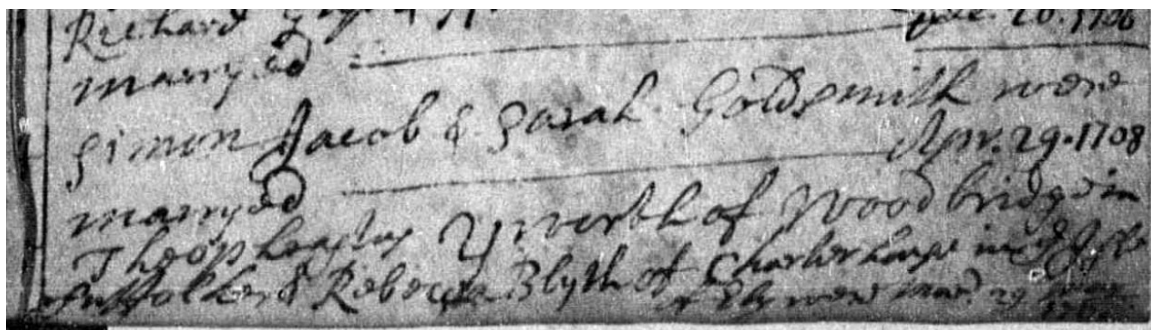 Richard
marryed Dec. 26. 1706
Simon Jacob & Sarah Goldsmith were
marryed Apr. 29. 1708
Theophilus Yworth of Woodbridge in
Suffolke & Rebecca Blyth of Charterhouse in
of Ely were marr. 29